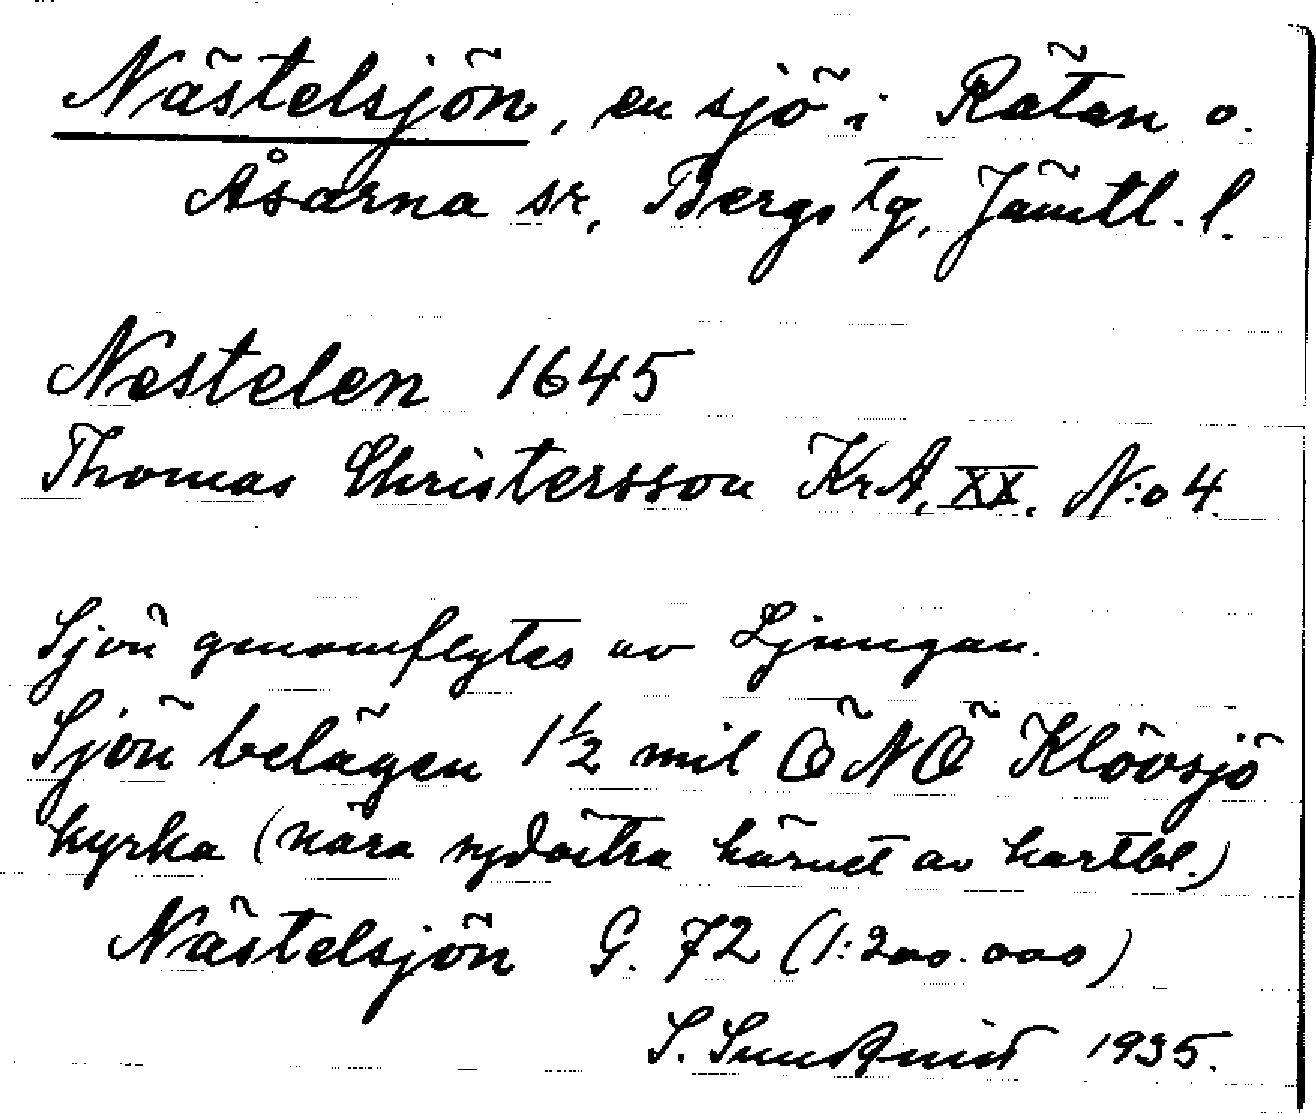 Nästelsjön, en sjö i Rätan o.
Åsarna sr, Bergs tg, Jämtl. l.
Nestelen 1645
Thomas Christersson KrA, XX. N:o 4.
Sjön genomflytes av Ljungan.
Sjön belägen 1 1/2 mil ÖNÖ Klövsjö
kyrka (nära sydöstra hörnet av kartbl.)
Nästelsjön G. 72 (1:200.000)
S. Sundkvist 1935.